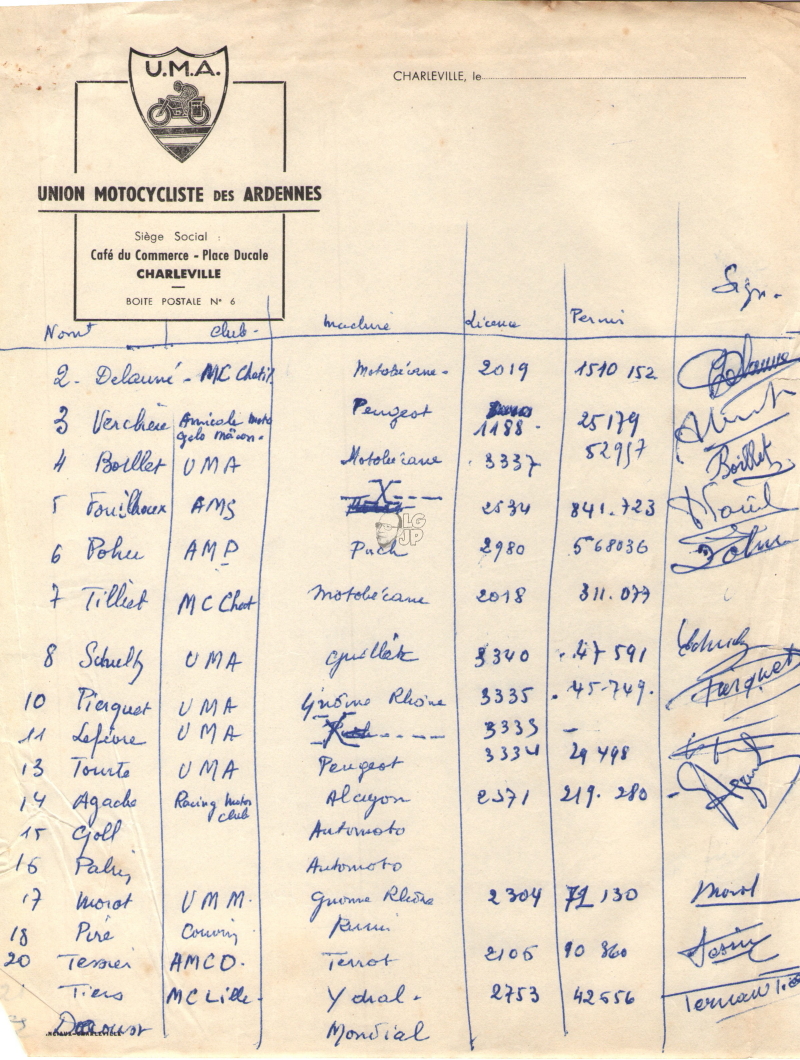 U.M.A.
CHARLEVILLE, le
UNION MOTOCYCLISTE DES ARDENNES
Siège Social :
Café du Commerce - Place Ducale
CHARLEVILLE
BOITE POSTALE N° 6
Sign.
Nom Club - machine Licence Permis
2 - Delauné - MC Chatil. Motobécane - 2019 1510 152
3 Verchère Amicale moto Peugeot 25179
cyclo Mâcon - 1188 -
4 Boillet UMA Motobécane 3337 52957 Boillet
5 Fouilhoux AMS X 2534 841.723
LG
JP
6 Pohu AMP Puch 2980 568036
7 Tilliet MC Chat Motobécane 2018 311.077
8 Schultz UMA Guillet 3340 47 591
10 Pierquet UMA Gnôme Rhône 3335 45-749. Pierquet
11 Lefèvre UMA 3333 -
13 Tourte UMA Peugeot 3334 29 498
14 Agache Racing Motor Alcyon 2371 219.280 -
club
15 Goll Automoto
16 Automoto
17 Morot UMM. Gnome Rhône 2304 71 130 Morot
18 Piré Couvin
20 Tessier AMCD. Terrot 2105 90 860
Tiers MC Lille - Ydral - 2753 42556
Mondial